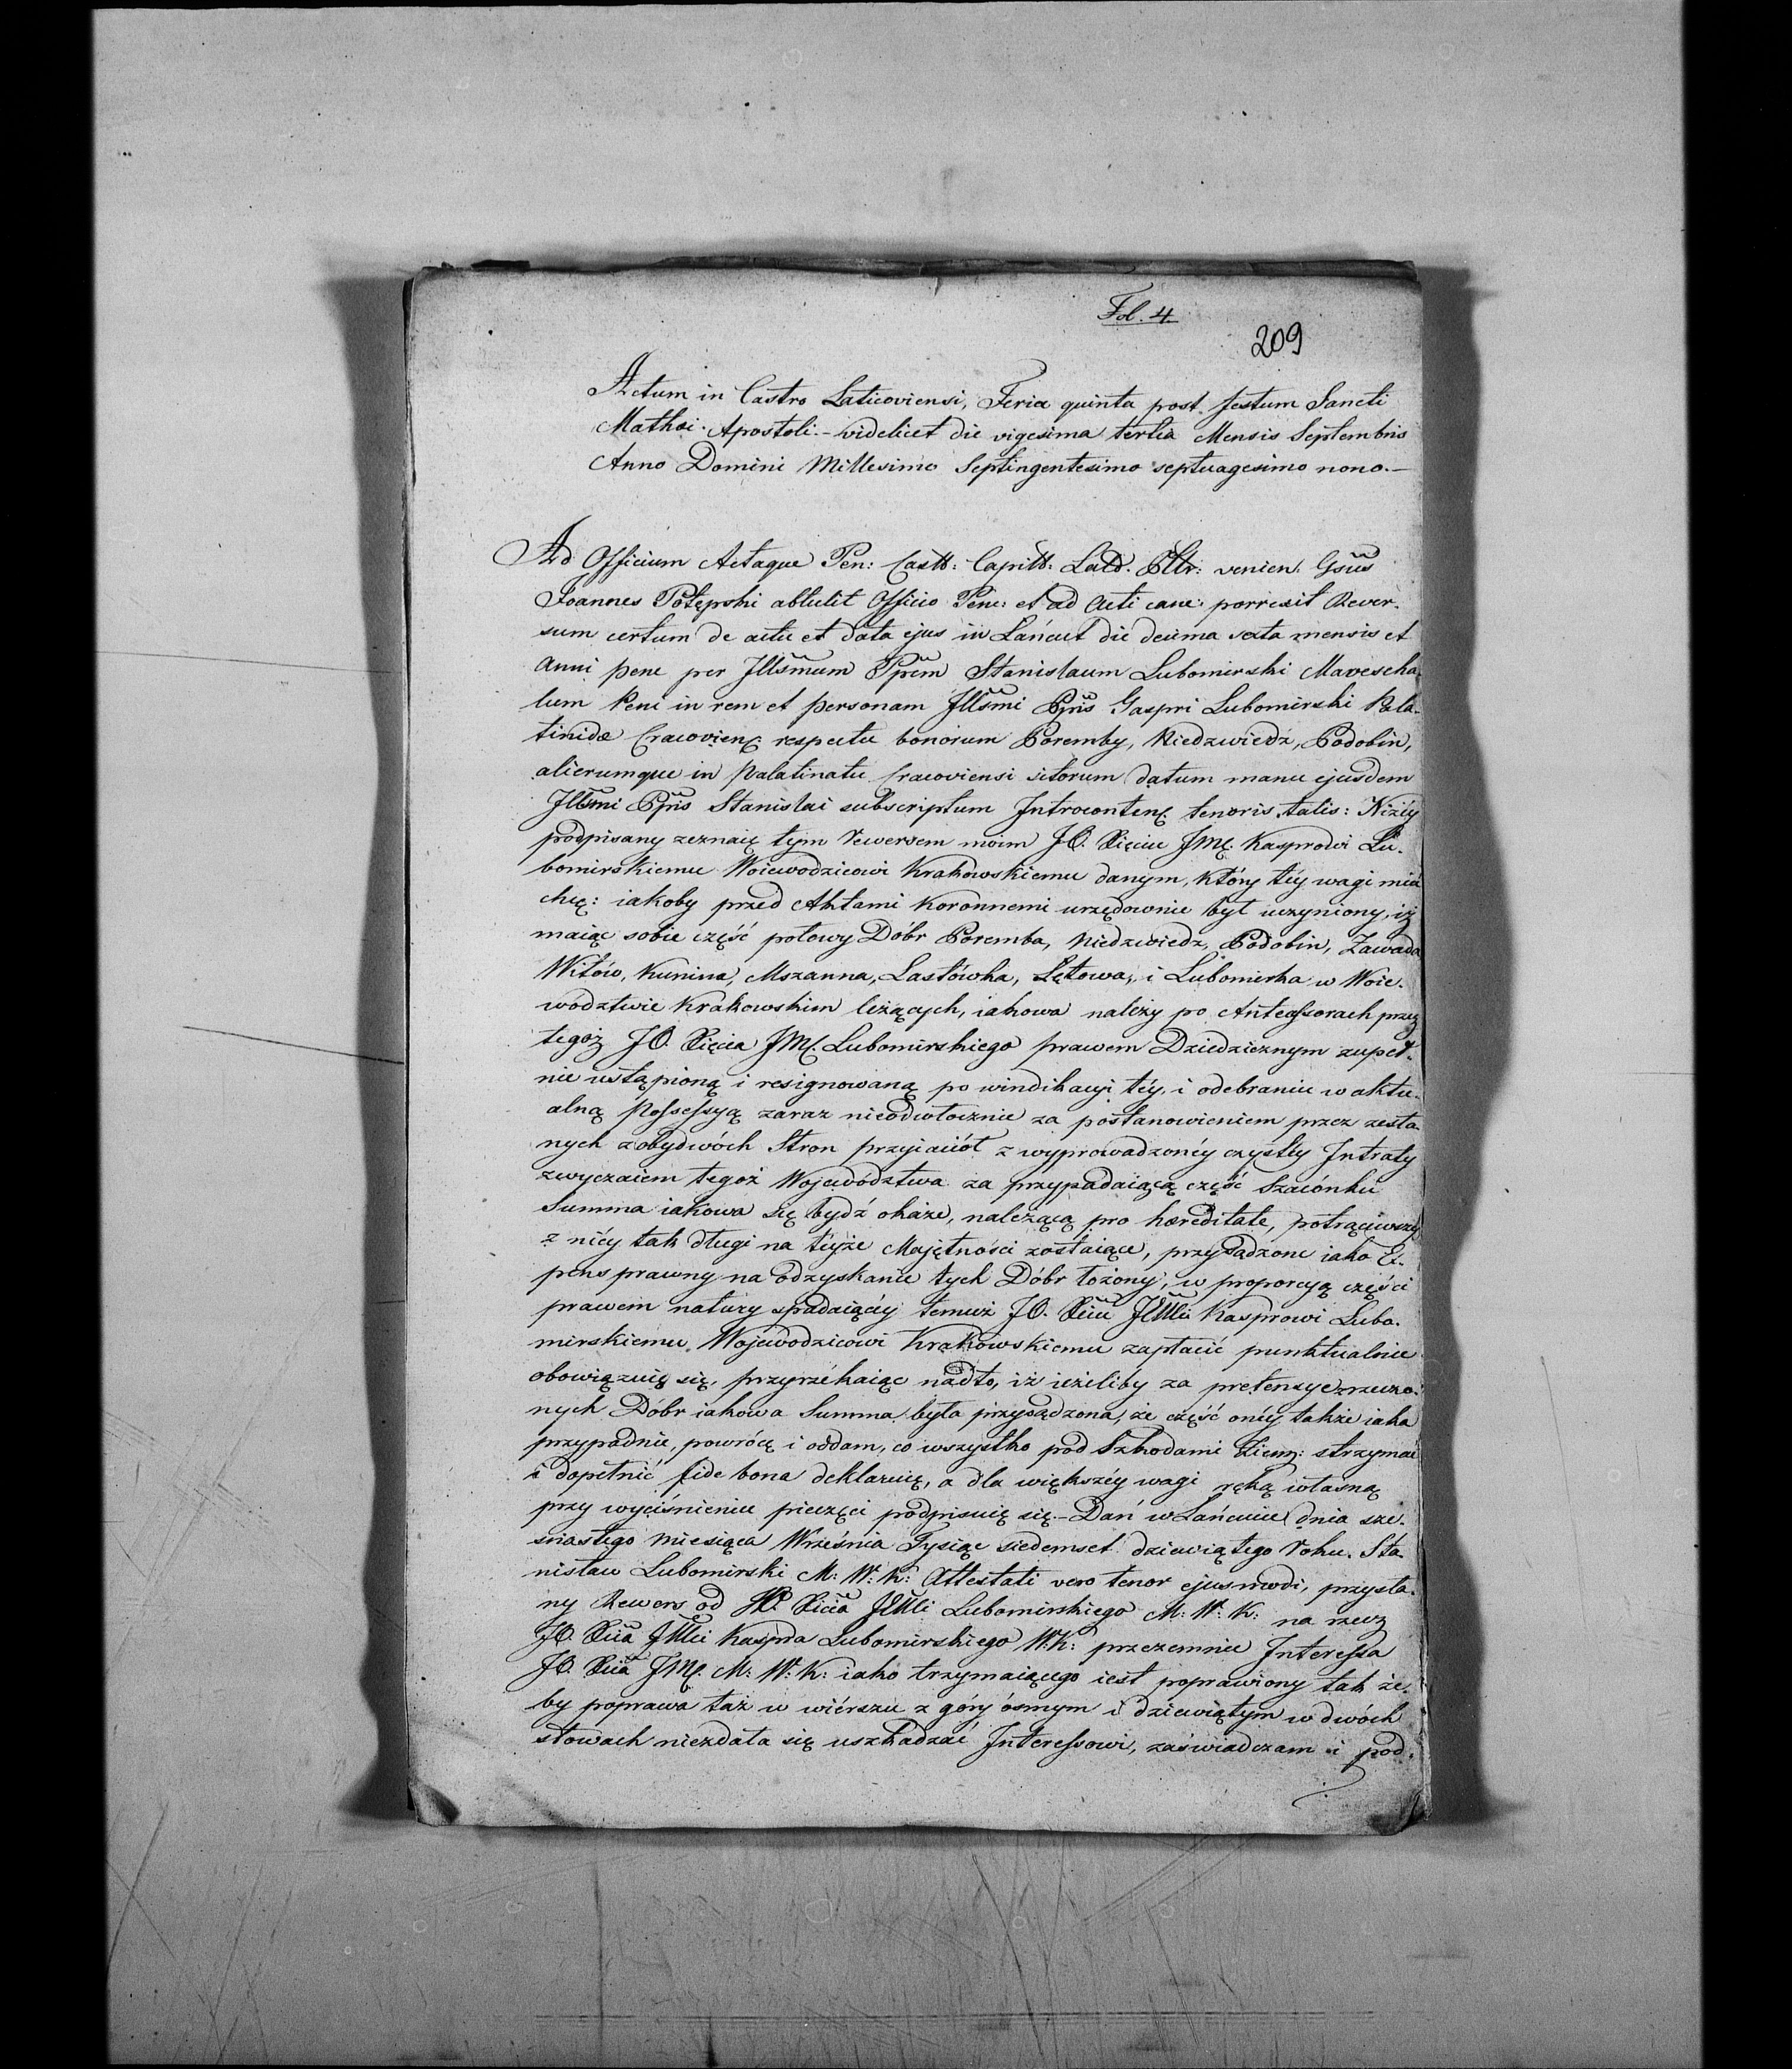 Fol. 4.
209
Actum in Castro Laticoviensi, Feria quinta post festum Sancti
Mathæi Apostoli.- videlicet die vigesima tertia Mensis Septembris
Anno Domini Millesimo Septingentesimo septuagesimo nono.-
Ad Officium Actaque Pen: Castt: Capitt: venien: Gsus
Joannes Potępski obtulit Officio Pene: et ad Acti porrexit Rever-
sum certum de actu et data ejus in Łańcut die decima sexta mensis et
Anni pene per Jllsmum Stanislaum Lubomirski Marescha-
lum Reni in rem et personam Jllsmi Gaspri Lubomirski Pala-
tinidæ Cracovienẹ respectu bonorum Poremby, Niedzwiedź, Podobin,
aliorumque in Palatinatu Cracoviensi sitorum datum manu ejusdem
Jllsmi Stanislai subscriptum Introconten: tenoris talis: Niżey
podpisany zeznaię tym rewersem moim JO. Xięciu JMC. Kasprowi Lu-
bomirskiemu Woiewodzicowi Krakowskiemu danym, który téy wagi mieć
chcę: iakoby przed Aktami Koronnemi urzędownie był uczyniony, iż
maiąc sobie część połowy Dóbr Poremba, Niedzwiedz, Podobin, Zawada
Witów, Kunina, Mszanna, Łastówka, Łętowa, i Lubomirka w Woie-
wództwie Krakowskim leżących, iakowa należy po Antecessorach przez
tegoż JO. Xięcia JMC. Lubomirskiego prawem Dziedzicznym zupeł-
nie ustąpioną i resignowaną po windikacyi téy, i odebraniu w aktu-
alną Possessyą zaraz nieodwłocznie za postanowieniem przez zesła-
nych z obydwóch Stron przyiaciół z wyprowadzonéy czystéy Intraty
zwyczaiem tegoż Województwa za przypadaiącą część Szacónku
Summa iakowa się bydź okaże, należącą pro hæreditate, potrąciwszy
z niéy tak długi na téyże Maiętności zostaiące, przysądzone iako Ex-
pens prawny na odzyskanie tych Dóbr łożony, w proporcyą części
prawem natury spadaiącéy temuż JO. Xciu JEMci Kasprowi Lubo-
mirskiemu Wojewodzicowi Krakowskiemu zapłacić punktualnie
obowiązuię się, przyrzékaiąc nadto, iż ieżeliby za pretensye rzeczo-
nych Dóbr iakowa Summa była przysądzona, że część onéy także iaka
przypadnie, powrócę i oddam, co wszystko pod Szkodami Ziem: strzymać
i dopełnić fide bona deklaruię, a dla większéy wagi ręką własną
przy wyciśnieniu pieczęci podpisuię się.- Dań w Łańcucie dnia sze-
snastego miesiąca Września Tysiąc siedemset dziewiątego Roku. Sta-
nisław Lubomirski M: W: K: Attestati vero tenor ejusmodi, przysła-
ny Rewers od JO. Xicia JEMci Lubomirskiego M: W: K: na rzecz
JO. Xcia JEMci Kaspra Lubomirskiego W:K: przezemnie Interessa
JO. Xcia JMC. M: W: K: iako trzymaiącego iest poprawiony tak że-
by poprawa taż w wiérszu z góry ósmym i dziewiątym w dwóch
słowach niezdała się uszkadzać Interessowi, zaświadczam i pod-